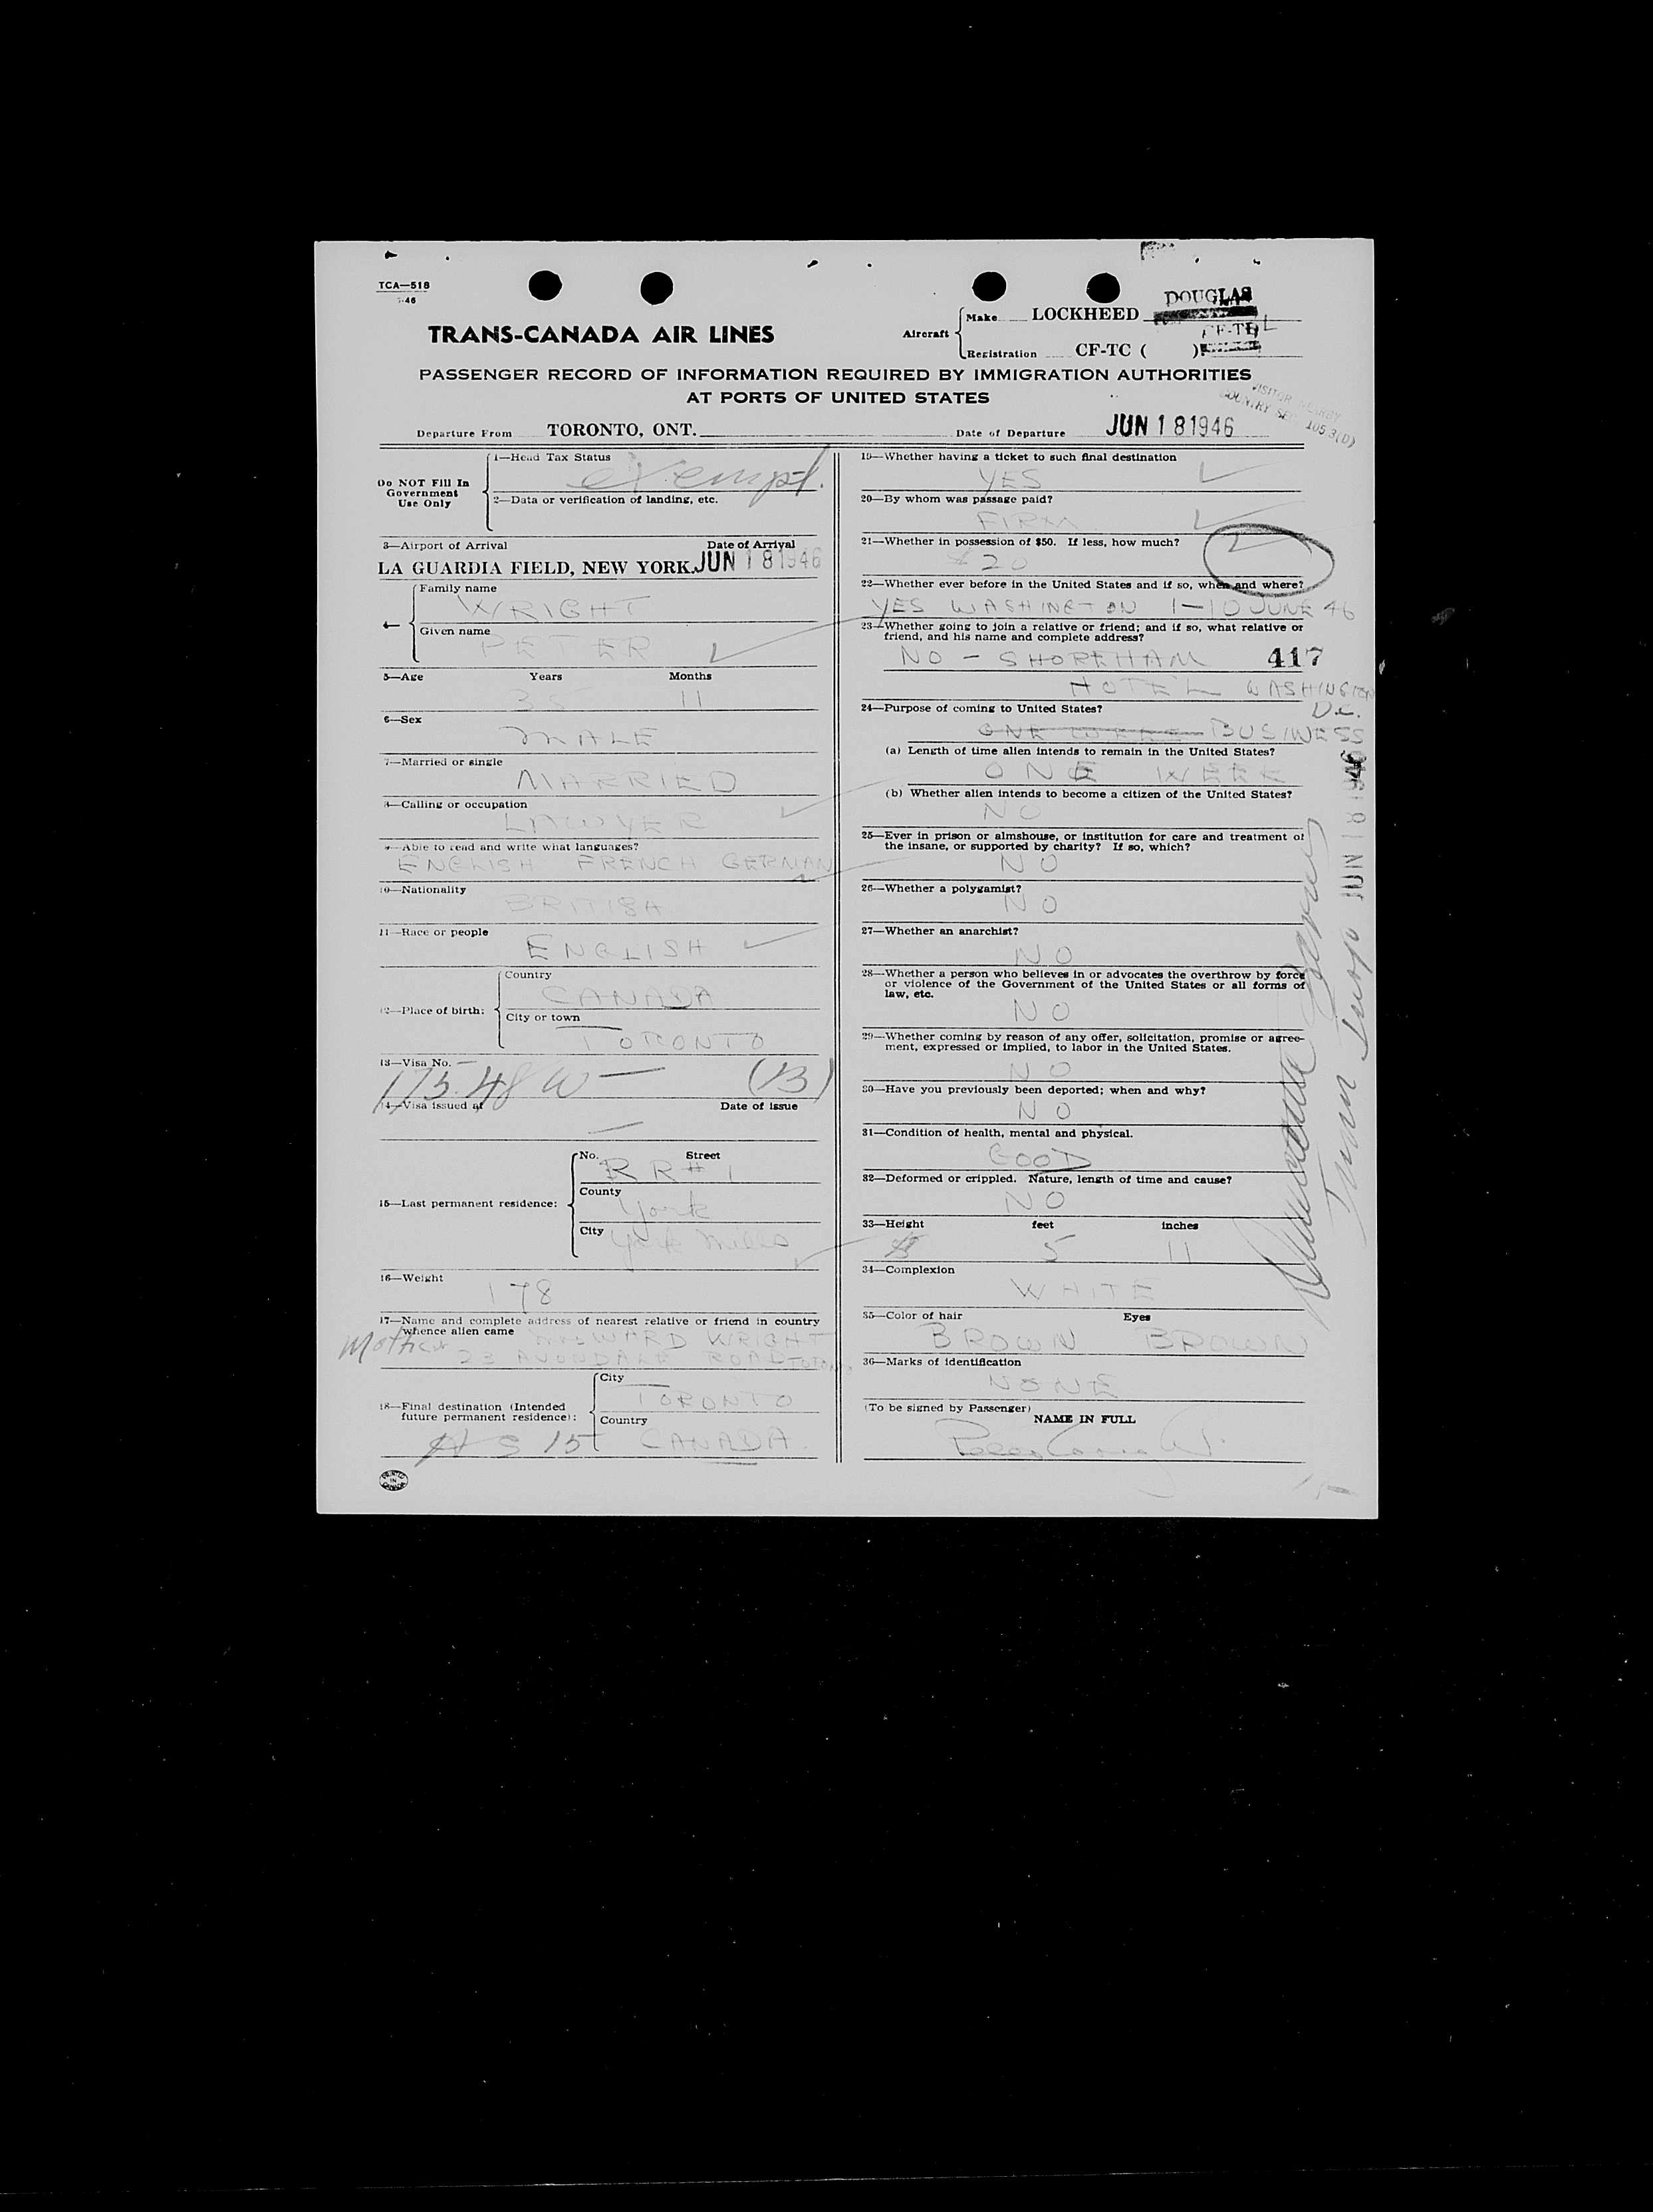 TCA—518
TRANS-CANADA AIR LINES
Aircraft
Make LOCKHEED DOUGLAS
Registration CF-TC ( ) CF-T
PASSENGER RECORD OF INFORMATION REQUIRED BY IMMIGRATION AUTHORITIES
AT PORTS OF UNITED STATES
VISITOR
COUNTRY SEC 105.3(D)
Departure From TORONTO, ONT. Date of Departure JUN 18 1946
Do NOT Fill In
Government
Use Only
1—Head Tax Status
exempt.
2—Data or verification of landing, etc.
3—Airport of Arrival Date of Arrival
LA GUARDIA FIELD, NEW YORK. JUN 18 1946
Family name
WRIGHT
Given name
PETER
5—Age Years Months
35 11
6—Sex
MALE
7—Married or single
MARRIED
8—Calling or occupation
LAWYER
9—Able to read and write what languages?
ENGLISH FRENCH GERMAN
10—Nationality
BRITISH
11—Race or people
ENGLISH
12—Place of birth:
Country
CANADA
City or town
TORONTO
13—Visa No.
175.48 W (B)
14—Visa issued at Date of issue
15—Last permanent residence:
No. Street
RR#1
County
York
City
York Mills
16—Weight
178
17—Name and complete address of nearest relative or friend in country
whence alien came
Mother WARD WRIGHT
23 AVONDALE ROAD
18—Final destination (Intended
future permanent residence):
City
TORONTO
Country
CANADA
PRINTED
IN
CANADA
19—Whether having a ticket to such final destination
YES
20—By whom was passage paid?
FIRM
21—Whether in possession of $50. If less, how much?
$20
22—Whether ever before in the United States and if so, when and where?
YES WASHINGTON 1-10 JUNE 46
23—Whether going to join a relative or friend; and if so, what relative or
friend, and his name and complete address?
NO - SHOREHAM 417
HOTEL WASHINGTON
D.C.
24—Purpose of coming to United States?
ONE WEEK BUSINESS
(a) Length of time alien intends to remain in the United States?
ONE WEEK
(b) Whether alien intends to become a citizen of the United States?
NO
25—Ever in prison or almshouse, or institution for care and treatment of
the insane, or supported by charity? If so, which?
NO
26—Whether a polygamist?
NO
27—Whether an anarchist?
NO
28—Whether a person who believes in or advocates the overthrow by force
or violence of the Government of the United States or all forms of
law, etc.
NO
29—Whether coming by reason of any offer, solicitation, promise or agree-
ment, expressed or implied, to labor in the United States.
NO
30—Have you previously been deported; when and why?
NO
31—Condition of health, mental and physical.
GOOD
32—Deformed or crippled. Nature, length of time and cause?
NO
33—Height feet inches
5 11
34—Complexion
WHITE
35—Color of hair Eyes
BROWN BROWN
36—Marks of identification
NONE
(To be signed by Passenger)
NAME IN FULL
JUN 18 1946